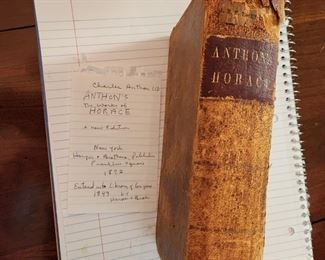 Charles Anthon LLD
ANTHON'S
The Works of
HORACE
A new Edition
New York
Harper & Brothers, Publish
Franklin Square
18
Entered into Library of Congress
1849 by
Harper & Broth
ANTHON'S
HORACE